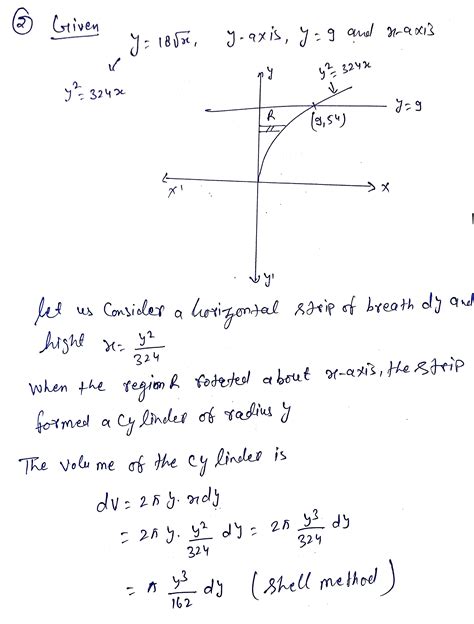 ② Given
y = 18√x, y-axis, y = 9 and x-axis
y² = 324x
y
y² = 324x
R
y = 9
(9, 54)
x'
x
y'
let us Consider a horizontal strip of breath dy and
hight x = y²/324
when the region R rotated about x-axis, the strip
formed a cylinder of radius y
The volume of the cylinder is
dV = 2π y. x dy
= 2π y. y²/324 dy = 2π y³/324 dy
= π y³/162 dy (shell method)